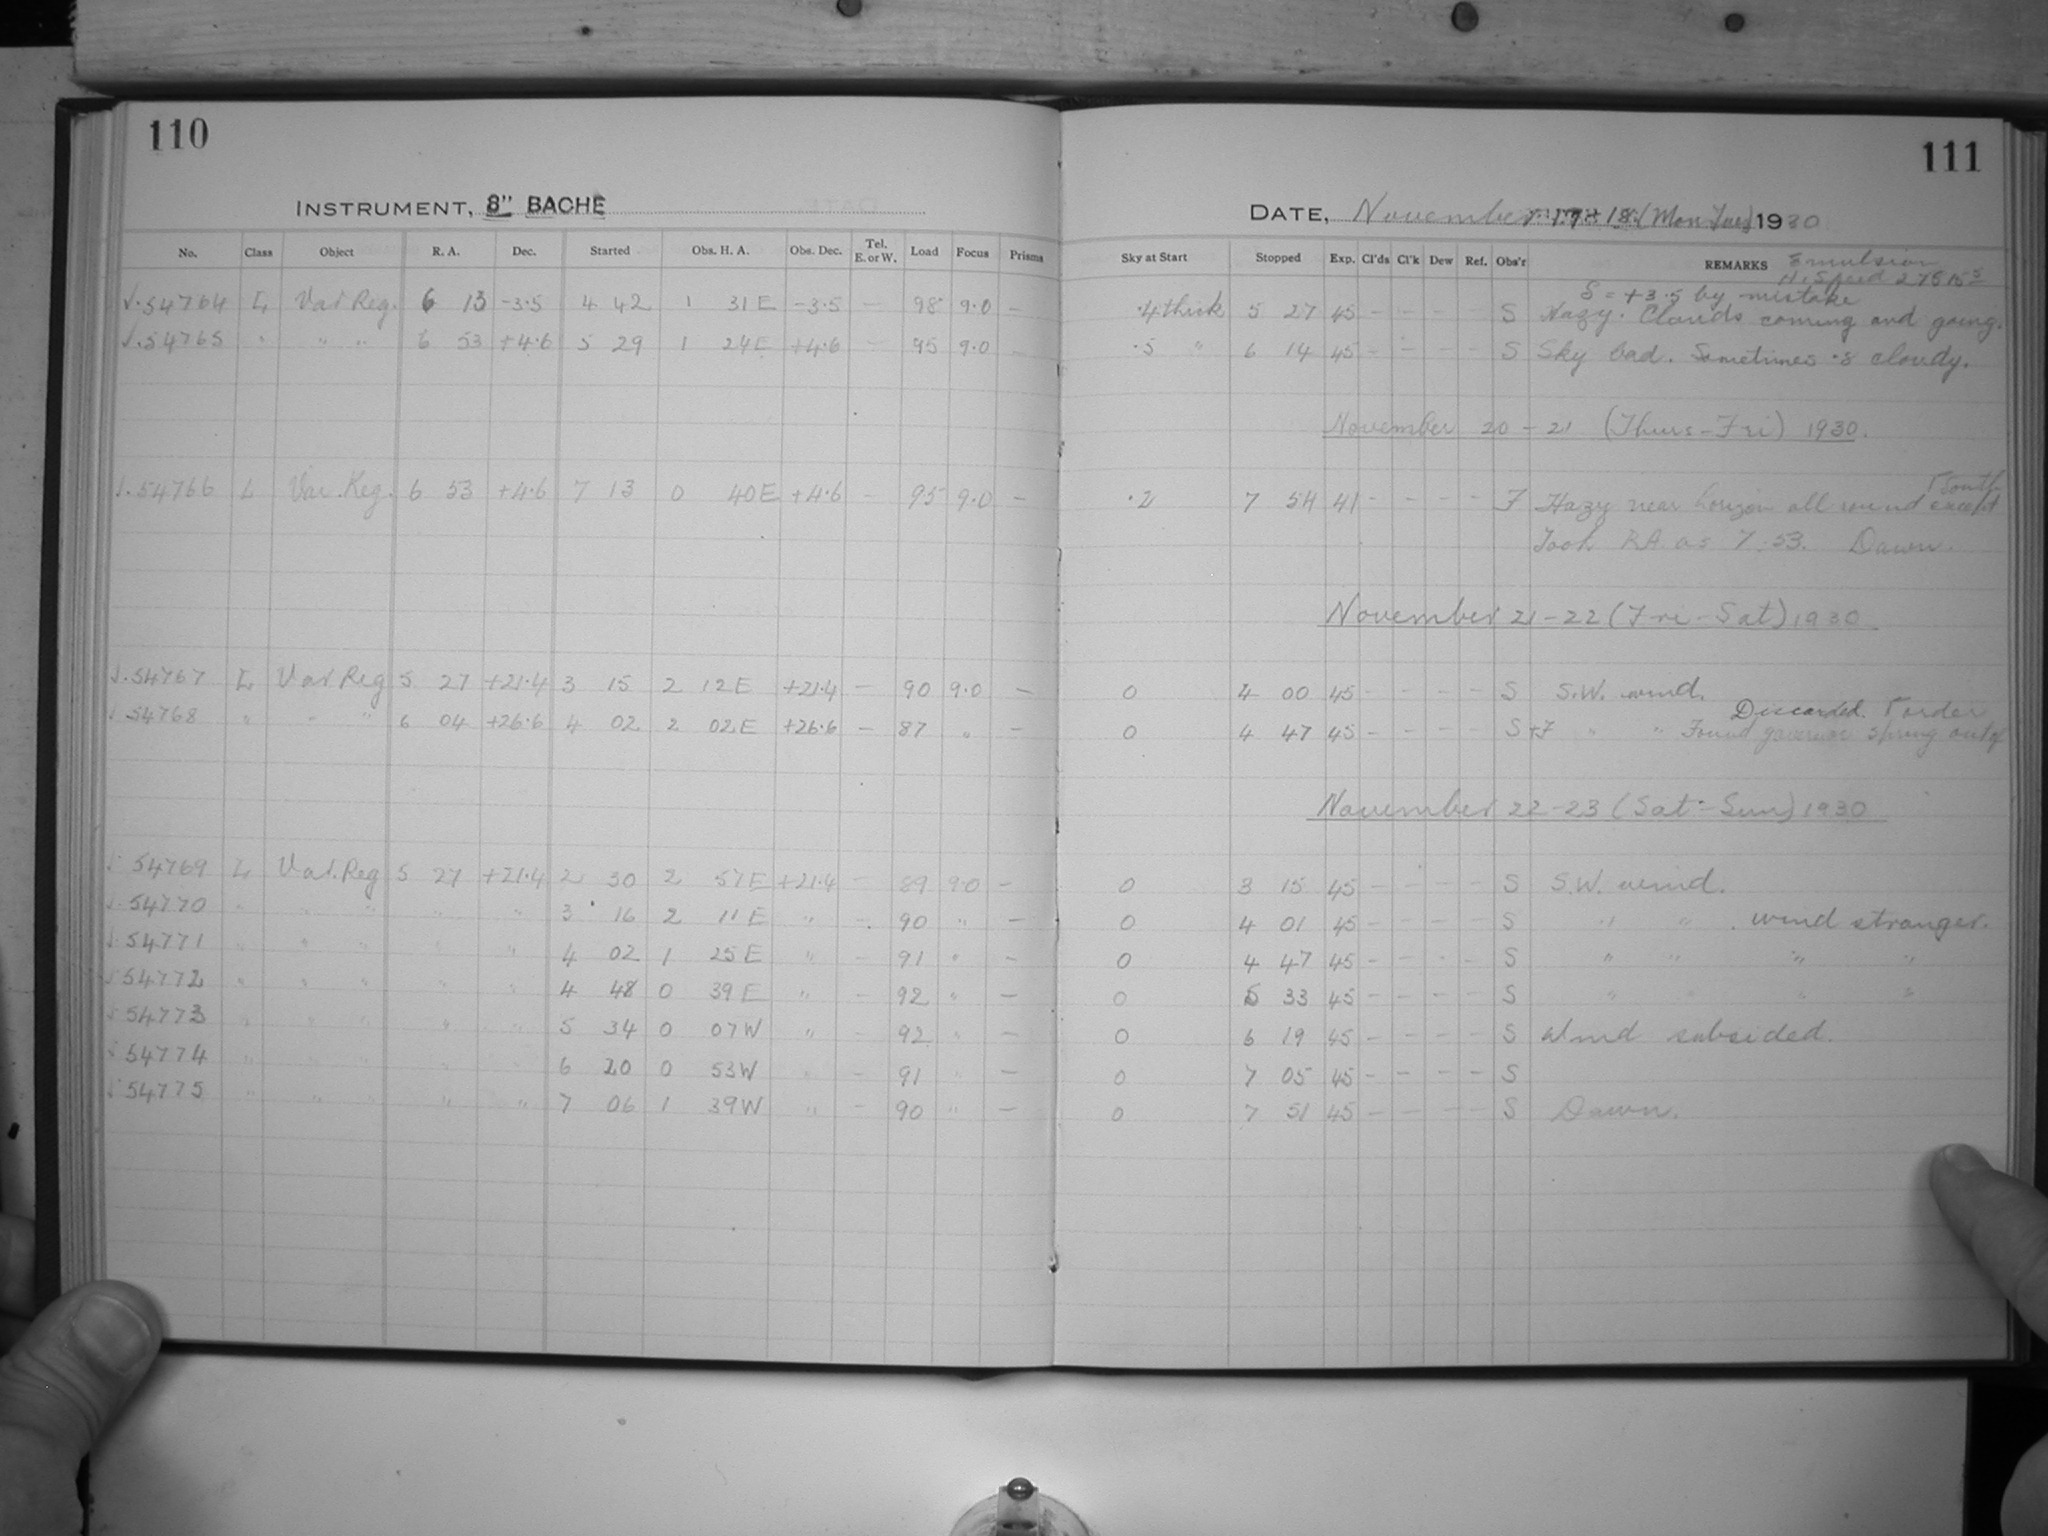 110
INSTRUMENT, 8" BACHE
No. Class Object R. A. Dec. Started Obs. H. A. Obs. Dec. Tel. E. or W. Load Focus Prisms
√.54764 L Var Reg. 6 13 -3.5 4 42 1 31 E -3.5 — 98 9.0 —
√.54765 " " " 6 53 +4.6 5 29 1 24 E +4.6 — 95 9.0 —
√.54766 L Var. Reg. 6 53 +4.6 7 13 0 40 E +4.6 — 95 9.0 —
√.54767 L Var Reg 5 27 +21.4 3 15 2 12 E +21.4 — 90 9.0 —
√ 54768 " " " 6 04 +26.6 4 02 2 02 E +26.6 — 87 " —
√ 54769 L Var. Reg 5 27 +21.4 2 30 2 57 E +21.4 — 89 9.0 —
√.54770 " " " " " 3 16 2 11 E " — 90 " —
√.54771 " " " " " 4 02 1 25 E " — 91 " —
√ 54772 " " " " " 4 48 0 39 E " — 92 " —
√ 54773 " " " " " 5 34 0 07 W " — 92 " —
√ 54774 " " " " " 6 20 0 53 W " — 91 " —
√ 54775 " " " " " 7 06 1 39 W " — 90 " —
111
DATE, November 17-18 (Mon Tues) 1930
Sky at Start Stopped Exp. Cl'ds Cl'k Dew Ref. Obs'r REMARKS Emulsion
Hi Speed 27515
S = +3.5 by mistake
.4 thick 5 27 45 - - - - S Hazy. Clouds coming and going.
.5 " 6 14 45 - - - - S Sky bad. Sometimes .8 cloudy.
November 20 - 21 (Thurs - Fri) 1930.
.2 7 54 41 - - - - F Hazy near horizon all round except South
Took RA as 7.53. Dawn.
November 21-22 (Fri-Sat) 1930
0 4 00 45 - - - - S S.W. wind.
0 4 47 45 - - - - S+F " " Discarded. Found governor spring out of order
November 22-23 (Sat-Sun) 1930
0 3 15 45 - - - - S S.W. wind.
0 4 01 45 - - - - S " " . wind stronger.
0 4 47 45 - - - - S " " " "
0 5 33 45 - - - - S " " " "
0 6 19 45 - - - - S Wind subsided.
0 7 05 45 - - - - S
0 7 51 45 - - - - S Dawn.